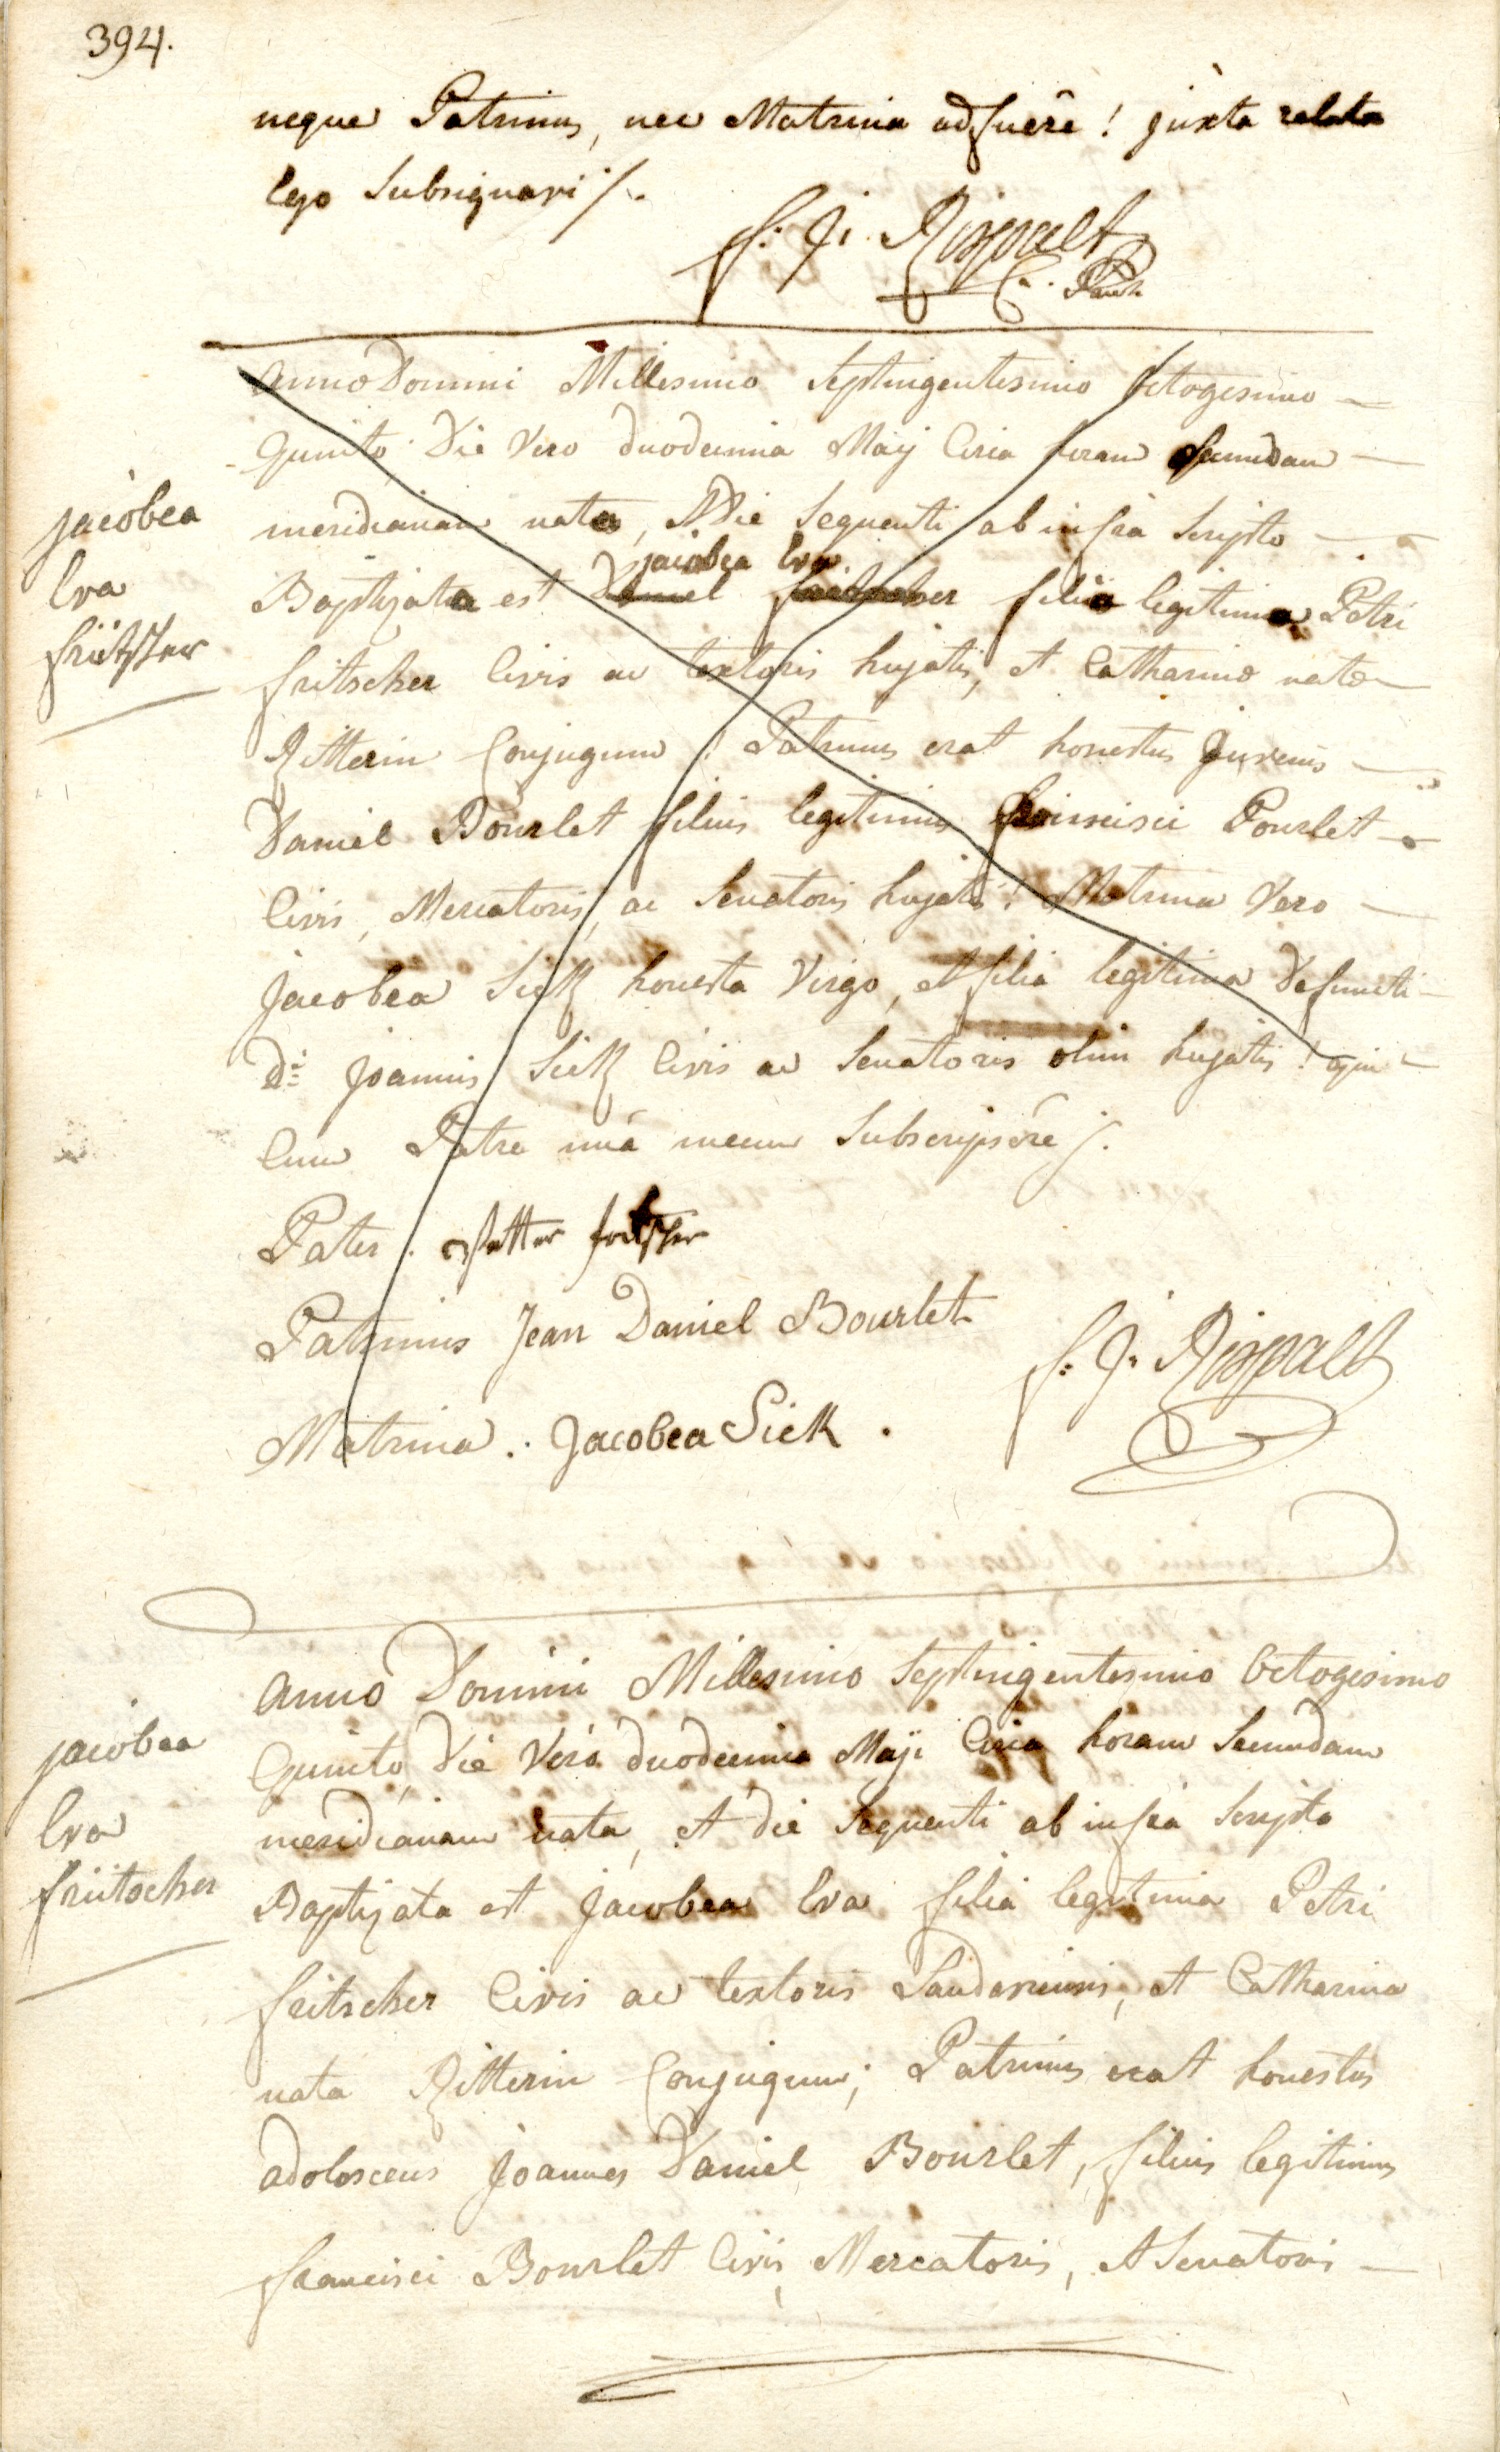 394.
neque Patrinus, nec Matrina adfuêre! juxta relata
Ego Subsignavi /.
f: J: Rispalt
C. Par.
Anno Domini Millesimo Septingentesimo Octogesimo
Quinto Die Vero duodecima Maij Circa horam Secundam
meridianam nata, et Die Sequenti ab infrà Scripto
jacobea Eva
Baptizata est Daniel fritscher filia legitima Petri
fritscher Civis ac textoris hujatis, et Catharinæ natæ
Ritterin Conjugum! Patrinus erat honestus Juvenis
Daniel Bourlet filius legitimus francisci Bourlet
Civis, Mercatoris, ac Senatoris hujatis! Matrina Vero
Jacobea Sick honesta Virgo, et filia legitima Defuncti
Di Joannis Sick Civis ac Senatoris olim hujatis! qui
Cum Patre unà mecum Subscripsêre /.
Pater. Petter fritscher
Patrinus Jean Daniel Bourlet
f: J: Rispalt
Matrina.: Jacobea Sick.
jacobea
Eva
fritscher
Anno Domini Millesimo Septingentesimo Octogesimo
Quinto Die Verò duodecima Maji Circa horam Secundam
meridianam nata, et die Sequenti ab infrà Scripto
Baptizata est Jacobea Eva filia legitima Petri
fritscher Civis ac textoris Landaviensis, et Catharina
nata Ritterin Conjugum; Patrinus erat honestus
adolescens Joannes Daniel Bourlet, filius legitimus
francisci Bourlet Civis, Mercatoris, et Senatoris
jacobea
Eva
frütscher